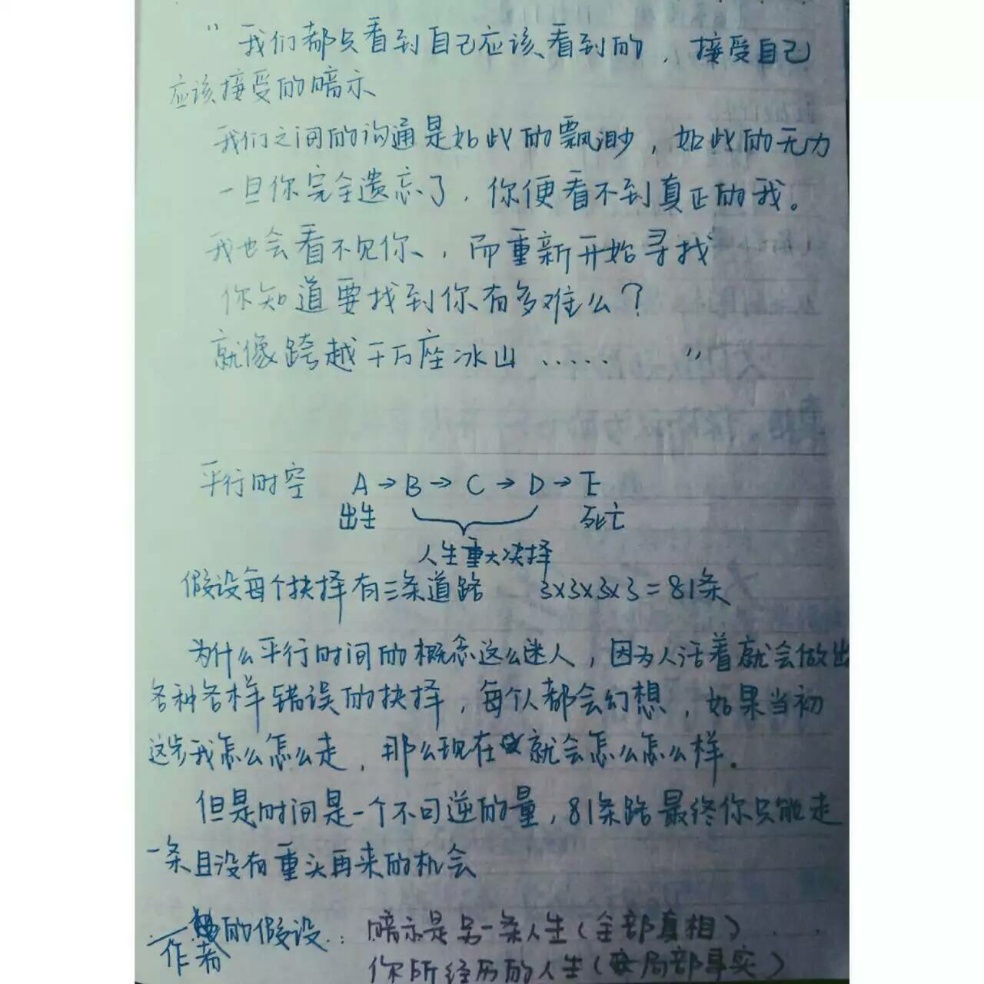 “我们都只看到自己应该看到的，接受自己
应该接受的暗示
我们之间的沟通是如此的飘渺，如此的无力
一旦你完全遗忘了，你便看不到真正的我。
我也会看不见你、，而重新开始寻找
你知道要找到你有多难么？
就像跨越千万座冰山……”
平行时空 A→B→C→D→E
出生 死亡
人生重大决择
假设每个抉择有三条道路 3×3×3×3=81条
为什么平行时间的概念这么迷人，因为人活着就会做出
各种各样错误的抉择，每个人都会幻想，如果当初
这步我怎么怎么走，那么现在就会怎么怎么样。
但是时间是一个不可逆的量，81条路最终你只能走
一条且没有重头再来的机会
作者的假设：暗示是另一条人生（全部真相）
你所经历的人生（局部事实）